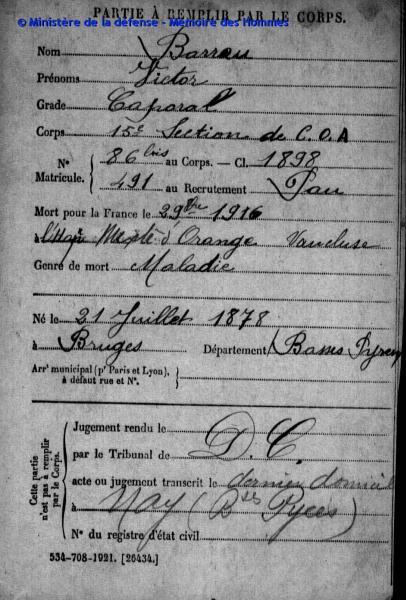 © Ministère de la défense - Mémoire des Hommes
PARTIE À REMPLIR PAR LE CORPS.
Nom Barrau
Prénoms Victor
Grade Caporal
Corps 15e Section de C.O.A
N° Matricule. 86 bis au Corps. — Cl. 1898
491 au Recrutement Pau
Mort pour la France le 29 1916
à Mixte d'Orange Vaucluse
Genre de mort Maladie
Né le 21 Juillet 1878
à Bruges Département Basses Pyren
Arrt municipal (pr Paris et Lyon),
à défaut rue et N°.
Cette partie
n'est pas à remplir
par le Corps.
Jugement rendu le
par le Tribunal de D. C.
acte ou jugement transcrit le dernier domicil
à Nay (Bses Pyees)
N° du registre d'état civil
534-708-1921. [26434.]